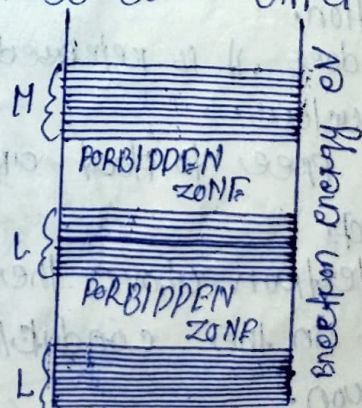 M
FORBIDDEN
ZONE
L
FORBIDDEN
ZONE
L
Electron energy eV